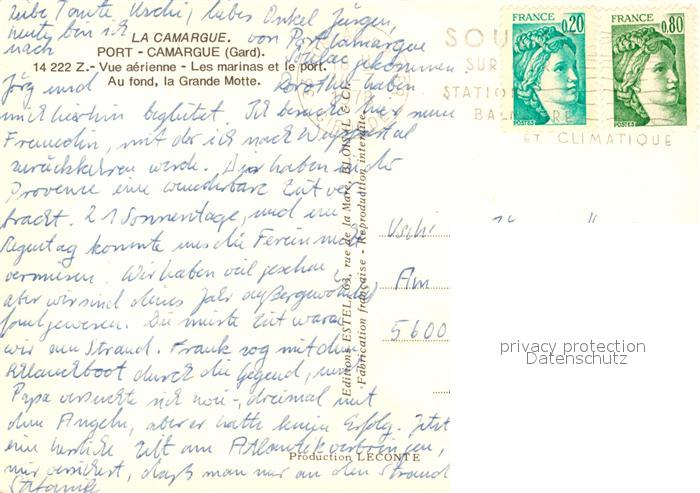 liebe Tante Uschi, lieber Onkel Jürgen,
heute bin ich von Port Camargue
nach gekommen.
LA CAMARGUE.
PORT - CAMARGUE (Gard).
14 222 Z.- Vue aérienne - Les marinas et le port.
Au fond, la Grande Motte.
Jörg und Dorothee haben
mich hierhin begleitet. Ich besuche hier meine
Freundin, mit der ich nach Wuppertal
zurückkehren werde. Wir haben in der
Provence eine wunderbare Zeit ver-
bracht. 21 Sonnentage, und ein
Regentag konnte uns die Ferien nicht
vermiesen. Wir haben viel gesehen,
aber wir sind dieses Jahr außergewöhnlich
faul gewesen. Die meiste Zeit waren
wir am Strand. Frank zog mit dem
Schlauchboot durch die Gegend, und
Papa versuchte sich zwei-, dreimal mit
dem Angeln, aber er hatte keinen Erfolg. Jetzt
eine herrliche Zeit am Atlantik verbringen,
nur versichert, daß man nur an den Strand
Stefanie
Production LECONTE
Editions ESTEL, 63, rue de la Mare, BLOIS
Fabrication française - Reproduction interdite
FRANCE
0,20
POSTES
FRANCE
0,80
POSTES
SOU
SUR
STATIO
BAL
ET CLIMATIQUE
Uschi
Am
5600
privacy protection
Datenschutz